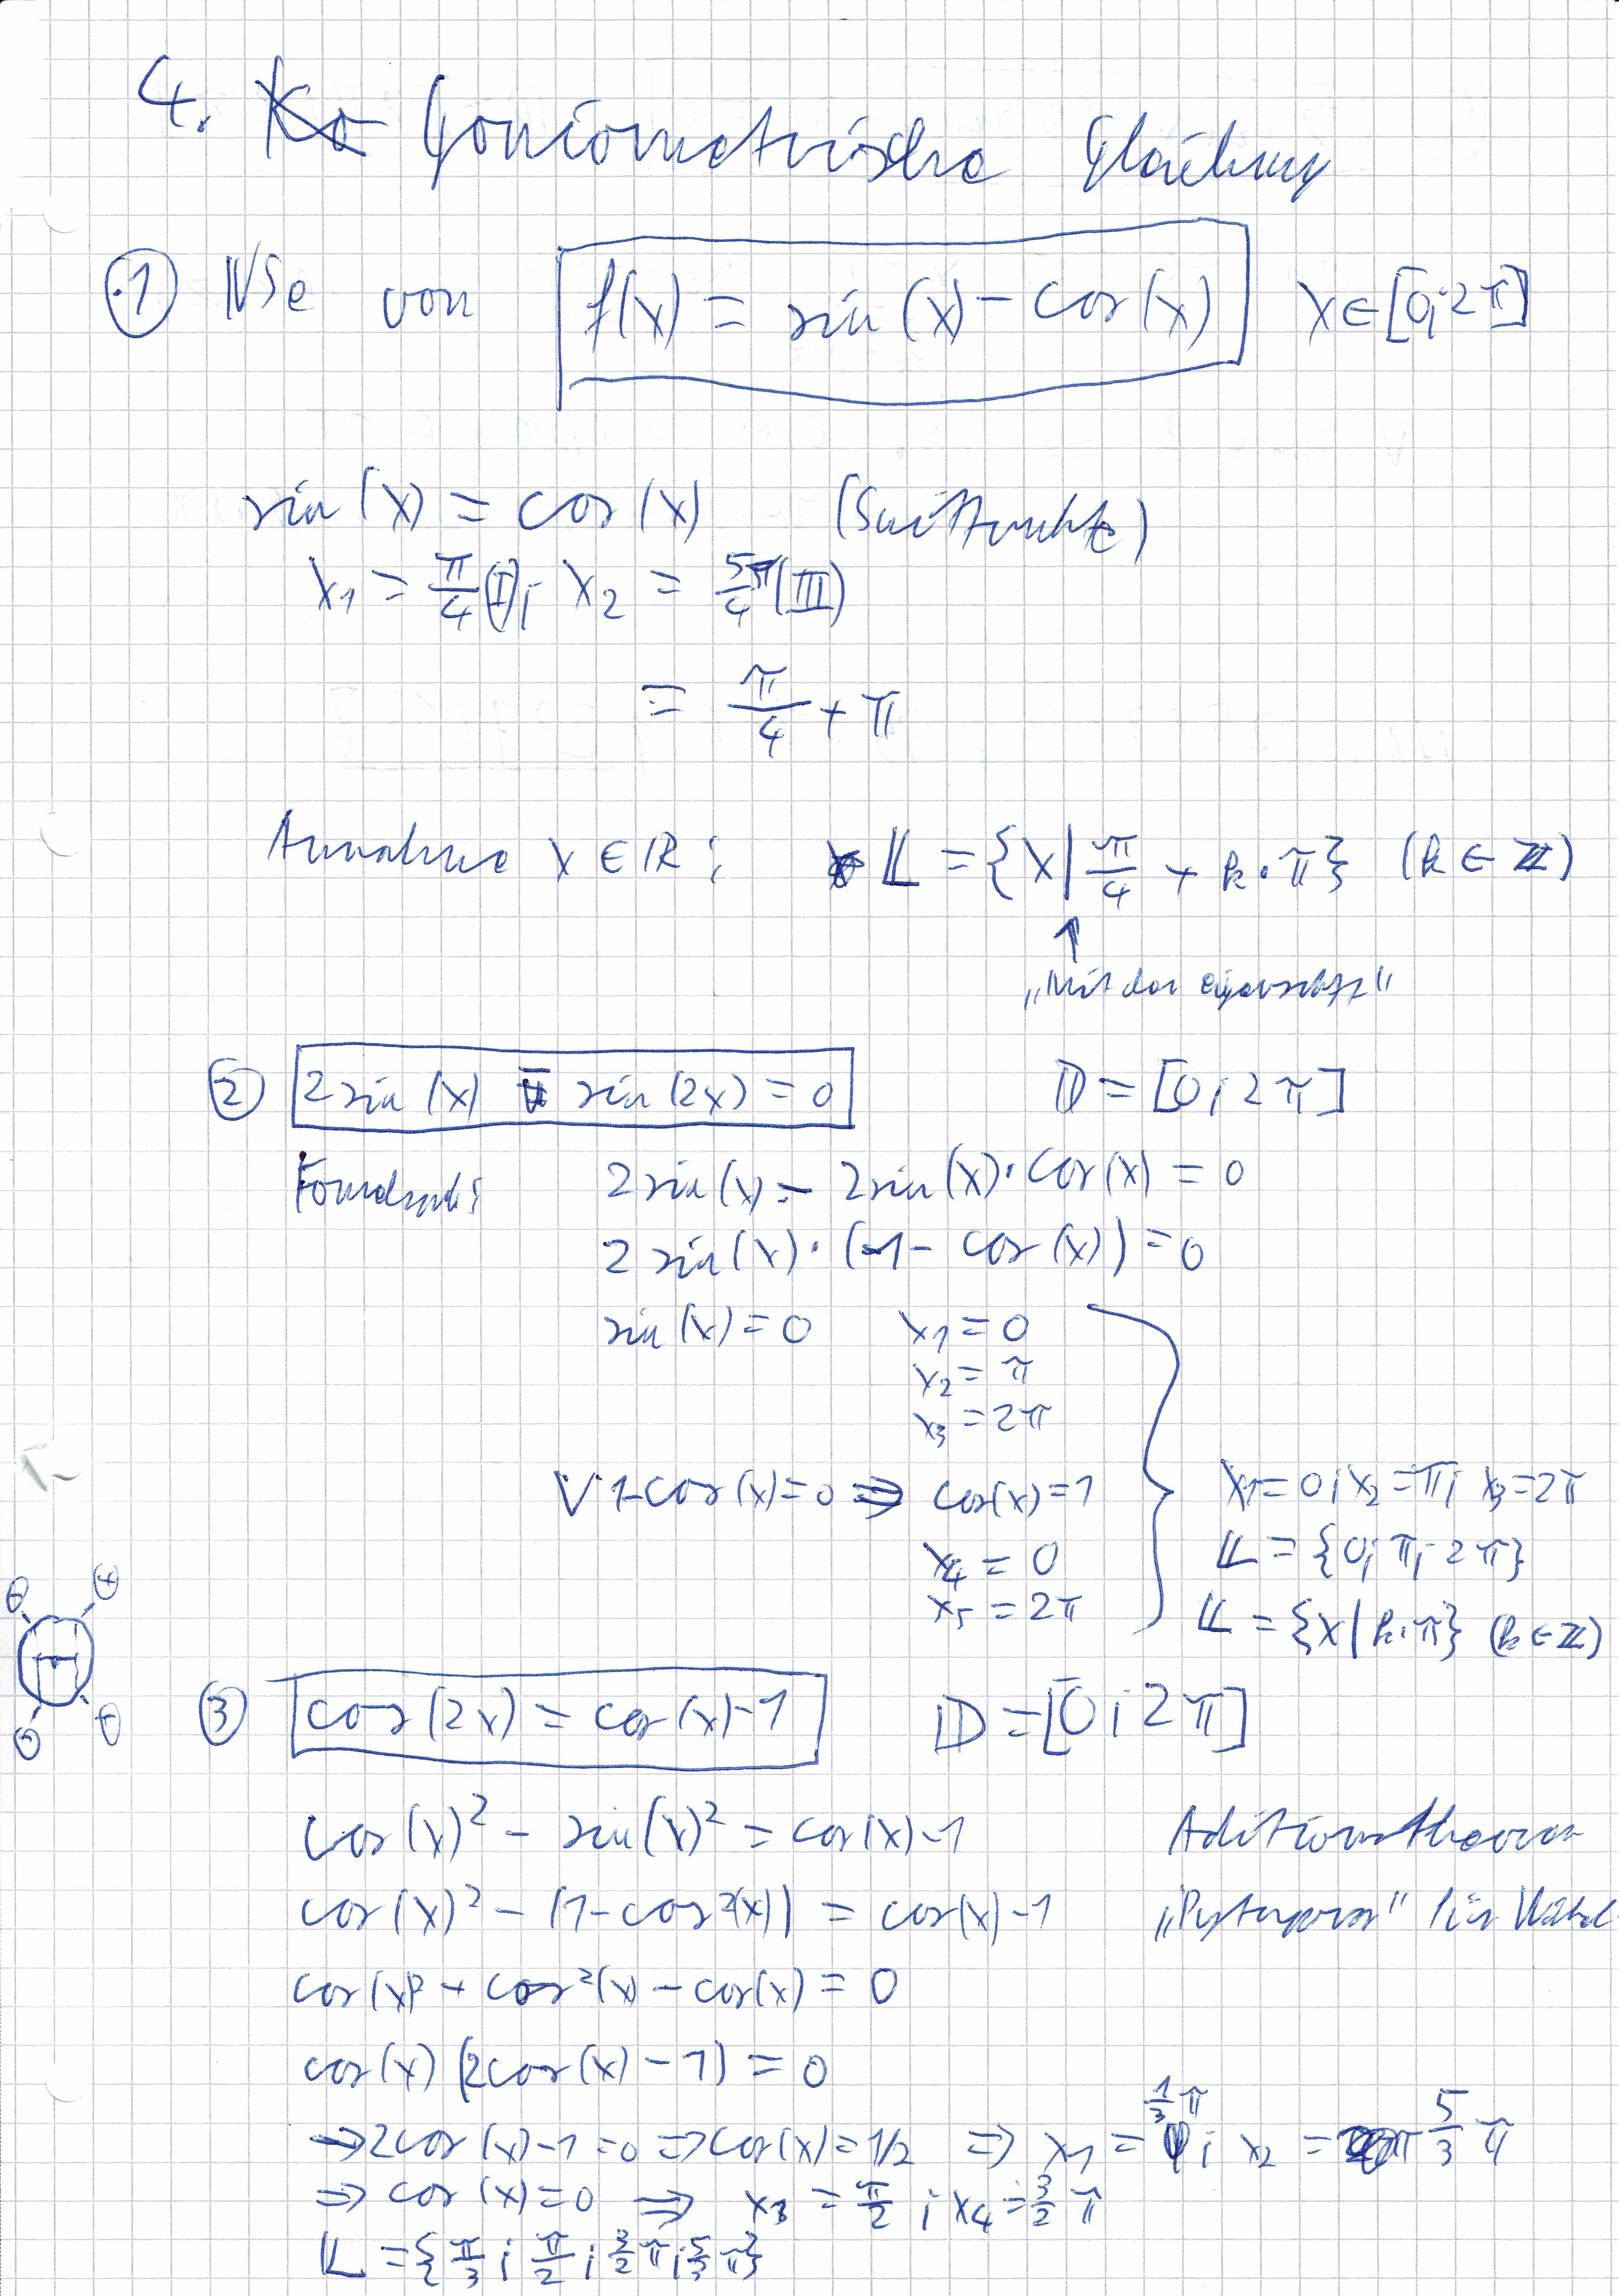 4. Goniometrische Gleichung
① NSe von f(x) = sin(x) - cos(x) x∈[0;2π]
sin(x) = cos(x) (Schnittpunkte)
x₁ = π/4 (I); x₂ = 5/4 π (III)
= π/4 + π
Annahme x ∈ ℝ: 𝕃 = {x | π/4 + k·π} (k ∈ ℤ)
↑
„Mit der Eigenschaft"
② 2 sin(x) - sin(2x) = 0 𝔻 = [0;2π]
2 sin(x) - 2 sin(x)·cos(x) = 0
2 sin(x)·(1 - cos(x)) = 0
sin(x) = 0 x₁ = 0
x₂ = π
x₃ = 2π
∨ 1-cos(x)=0 ⇒ cos(x)=1 x₁=0; x₂=π; x₃=2π
x₄ = 0 𝕃 = {0; π; 2π}
x₅ = 2π 𝕃 = {x | k·π} (k∈ℤ)
③ cos(2x) = cos(x)-1 𝔻 = [0;2π]
cos(x)² - sin(x)² = cos(x)-1 Aditionstheorem
cos(x)² - (1-cos²(x)) = cos(x)-1 „Pytagoras" für
cos(x)² + cos²(x) - cos(x) = 0
cos(x) (2cos(x) - 1) = 0
→ 2cos(x)-1=0 ⇒ cos(x)=1/2 ⇒ x₁ = 1/3 π; x₂ = 5/3 π
⇒ cos(x)=0 ⇒ x₃ = π/2; x₄ = 3/2 π
𝕃 = {π/3; π/2; 3/2 π; 5/3 π}